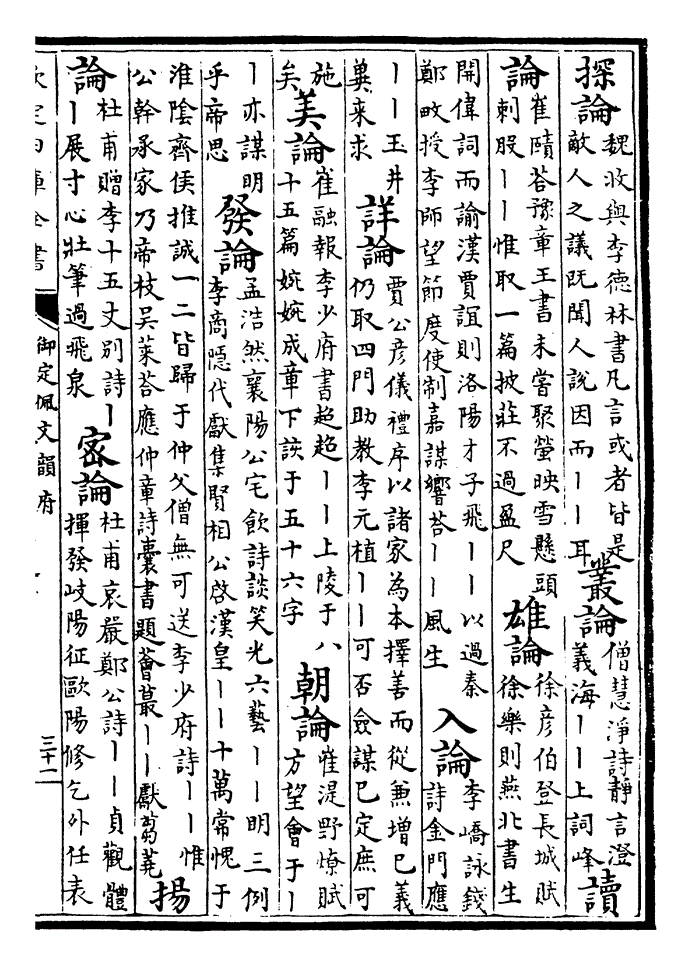 探論魏收與李德林書凡言或者皆是敵人之議既聞人說因而丨丨耳叢論僧慧淨詩靜言澄義海丨丨上詞峰讀
論崔賾荅豫章王書未嘗聚螢映雪懸頭刺股丨丨惟取一篇披莊不過盈尺雄論徐彥伯登長城賦徐樂則燕北書生
開偉詞而諭漢賈誼則洛陽才子飛丨丨以過秦鄭畋授李師望節度使制嘉謀響荅丨丨風生入論李嶠詠錢詩金門應
丨丨玉井冀來求詳論賈公彥儀禮序以諸家為本擇善而從兼增已義仍取四門助教李元植丨丨可否僉謀已定庶可
施矣美論崔融報李少府書超超丨丨上陵于八十五篇婉婉成章下詼于五十六字朝論崔湜野燎賦方望會于丨
丨亦謀明乎帝思發論孟浩然襄陽公宅飲詩談笑光六藝丨丨明三例李商隱代獻集賢相公啓漢皇丨丨十萬常愧于
淮陰齊侯推誠一二皆歸于仲父僧無可送李少府詩丨丨惟公幹承家乃帝枝吳萊荅應仲章詩囊書題薈蕞丨丨獻芻蕘揚
論杜甫贈李十五丈別詩丨丨展寸心壯筆過飛泉密論杜甫哀嚴鄭公詩丨丨貞觀體揮發岐陽征歐陽修乞外任表
欽定四庫全書
御定佩文韻府
三十一